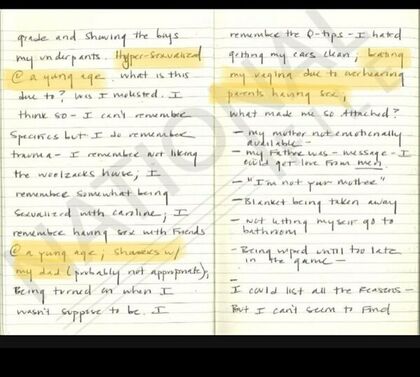 grade and showing the boys
my underpants. Hyper-sexualized
@ a yung age. what is this
due to? Was I molested. I
think so - I can't remember
specifics but I do remember
trauma - I remember not liking
the woolzacks house; I
remember somewhat being
sexualized with caroline; I
remember having sex with friends
@ a yung age; showers w/
my dad (probably not appropriate);
Being turned on when I
wasn't suppose to be. I
remember the Q-tips - I hated
getting my ears clean;
my vagina due to overhearing
parents having sex;
what made me so attached?
- my mother not emotionally
available -
- my Father was - message - I
could get love from men
- "I'm not your mother"
- Blanket being taken away
- not letting myself go to
bathroom
- Being wiped until too late
in the game -
-
I could list all the reasons -
But I can't seem to find
NATIONAL